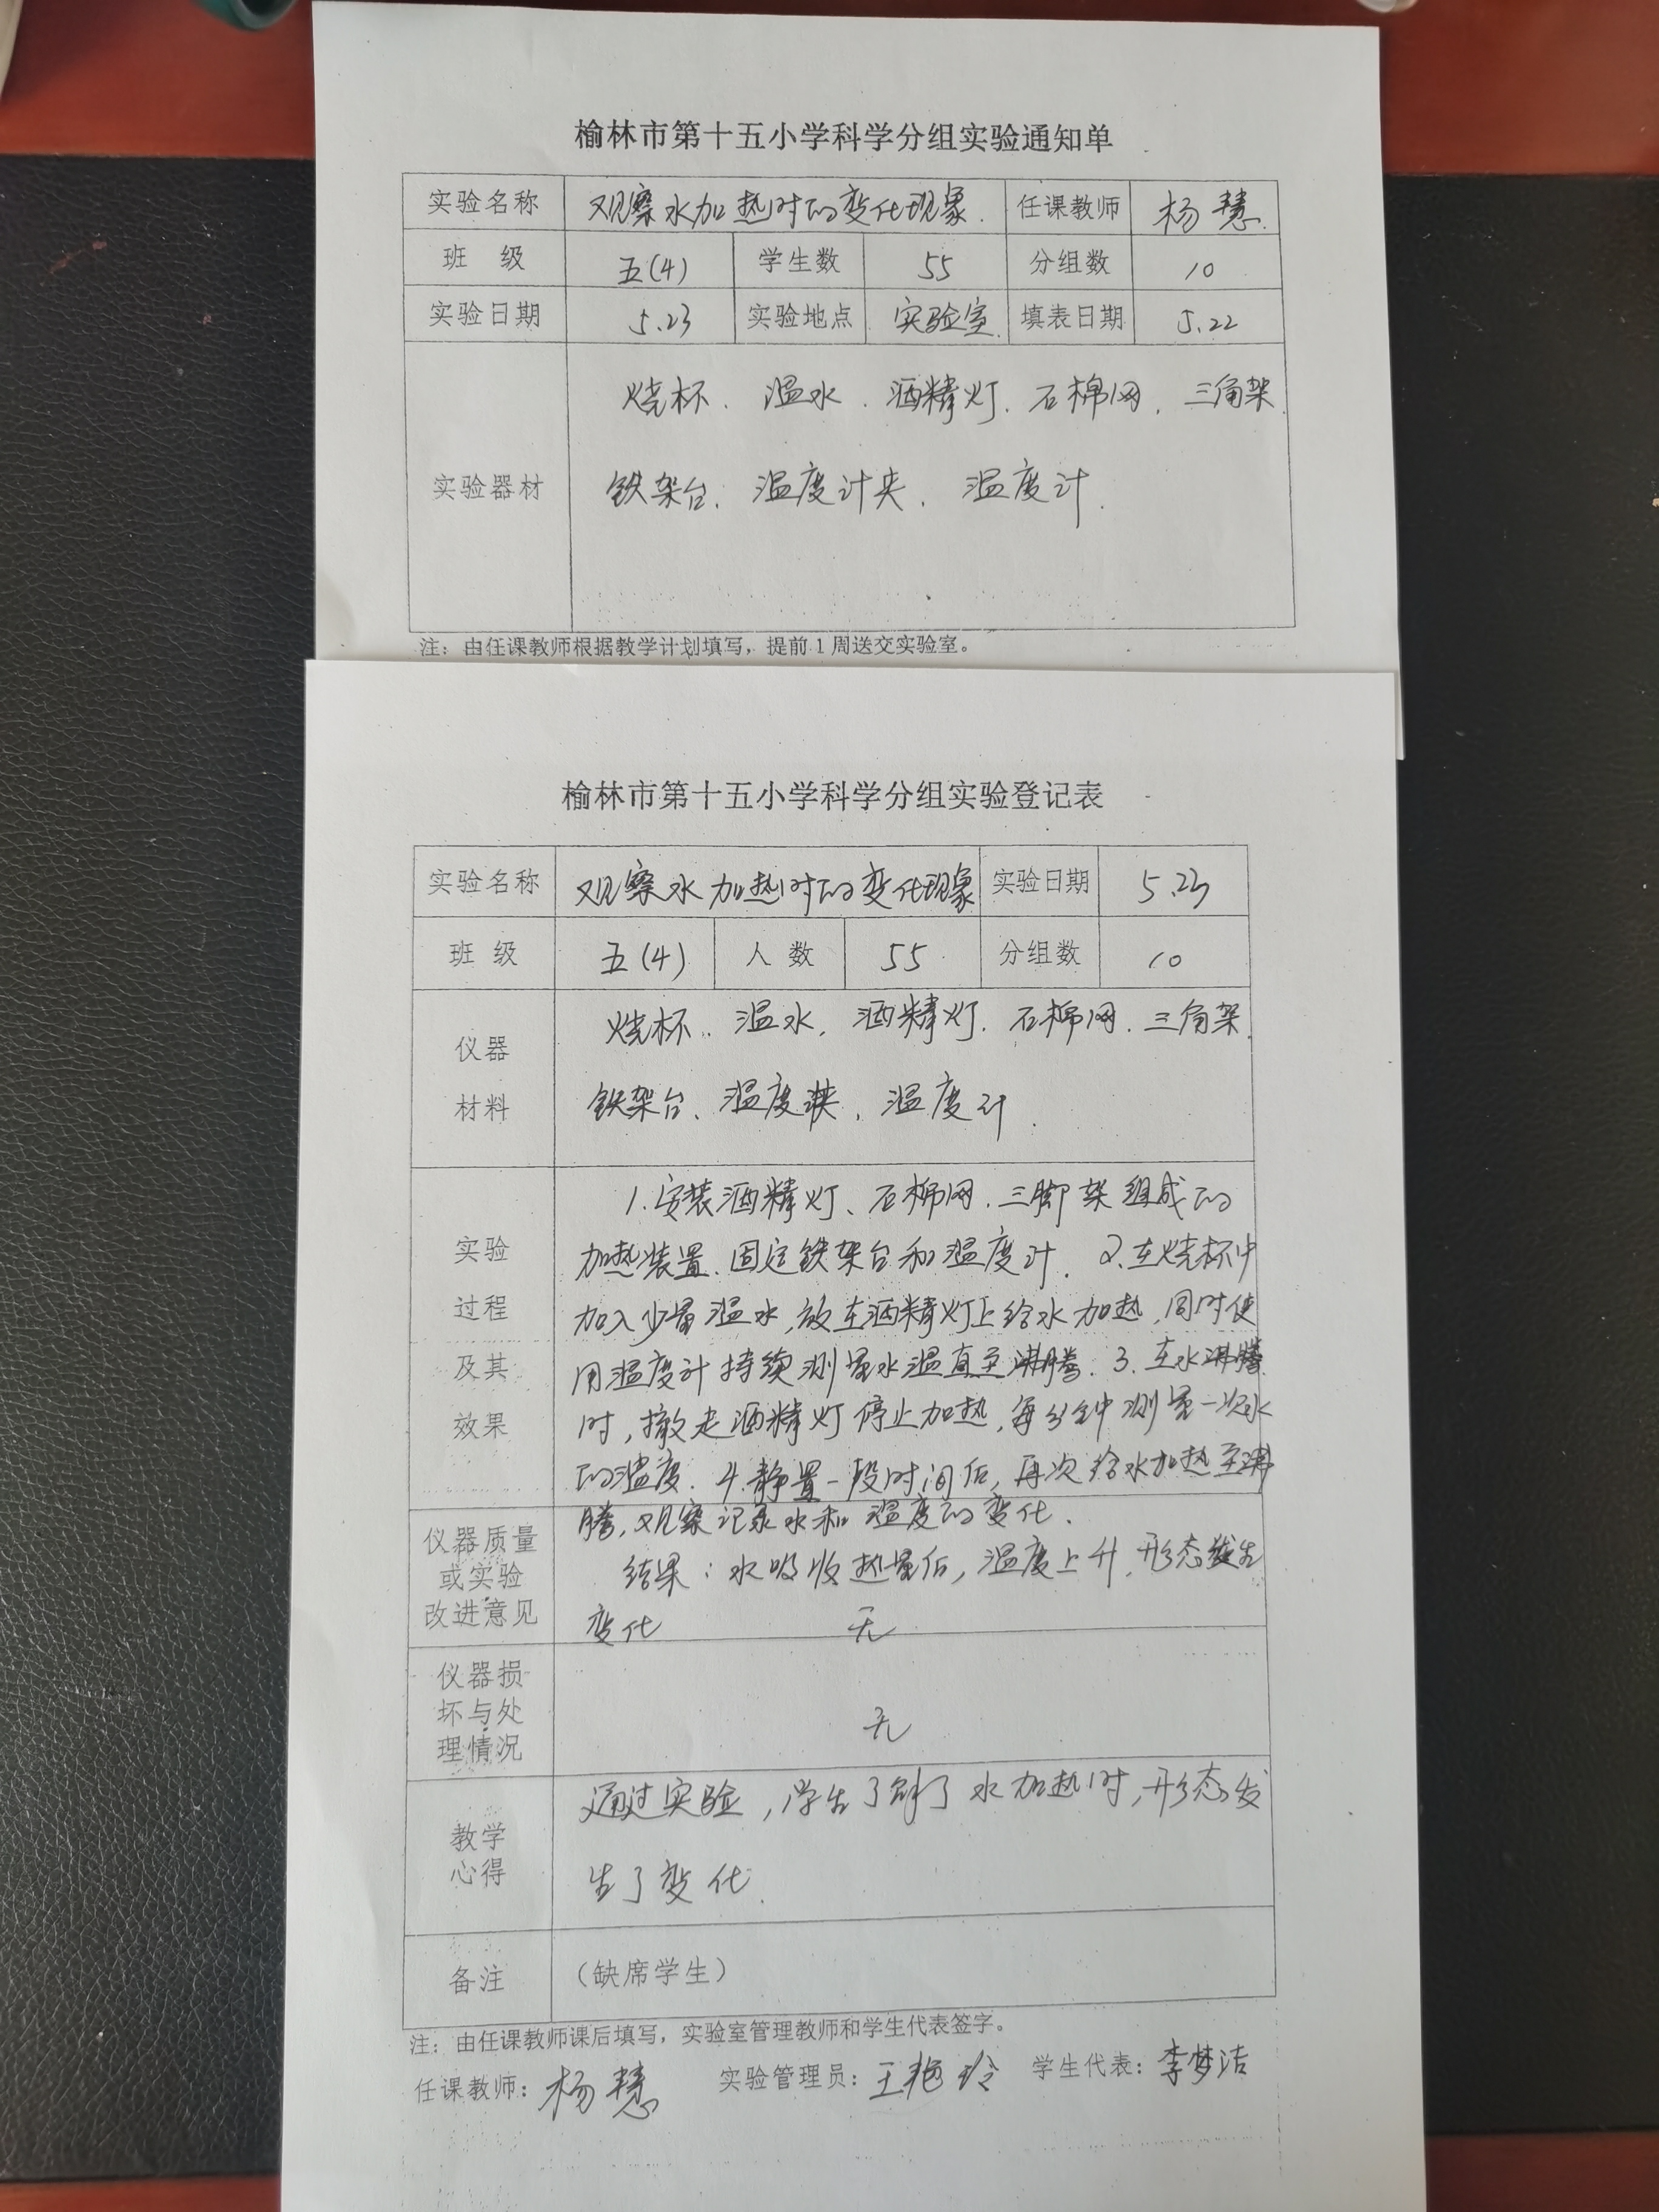 榆林市第十五小学科学分组实验通知单
实验名称 观察水加热时的变化现象. 任课教师 杨慧
班 级 五(4) 学生数 55 分组数 10
实验日期 5.23 实验地点 实验室 填表日期 5.22
烧杯、温水、酒精灯、石棉网、三角架
实验器材 铁架台、温度计夹、温度计.
注：由任课教师根据教学计划填写，提前 1 周送交实验室。
榆林市第十五小学科学分组实验登记表
实验名称 观察水加热时的变化现象 实验日期 5.23
班 级 五(4) 人 数 55 分组数 10
仪器 烧杯、温水、酒精灯、石棉网、三角架
材料 铁架台、温度夹、温度计.
1.安装酒精灯、石棉网、三脚架组成的
实验 加热装置、固定铁架台和温度计. 2.在烧杯中
过程 加入少量温水,放在酒精灯上给水加热,同时使
及其 用温度计持续测量水温直至沸腾. 3.在水沸腾
效果 时,撤走酒精灯停止加热,每分钟测量一次水
的温度. 4.静置一段时间后,再次给水加热至沸
仪器质量 腾,观察记录水和温度的变化.
或实验 结果:水吸收热量后,温度上升,形态发生
改进意见 变化 无
仪器损
坏与处 无
理情况
通过实验,学生了解了水加热时,形态发
教学
心得 生了变化.
备注 （缺席学生）
注：由任课教师课后填写，实验室管理教师和学生代表签字。
任课教师：杨慧 实验管理员：王艳玲 学生代表：李梦洁